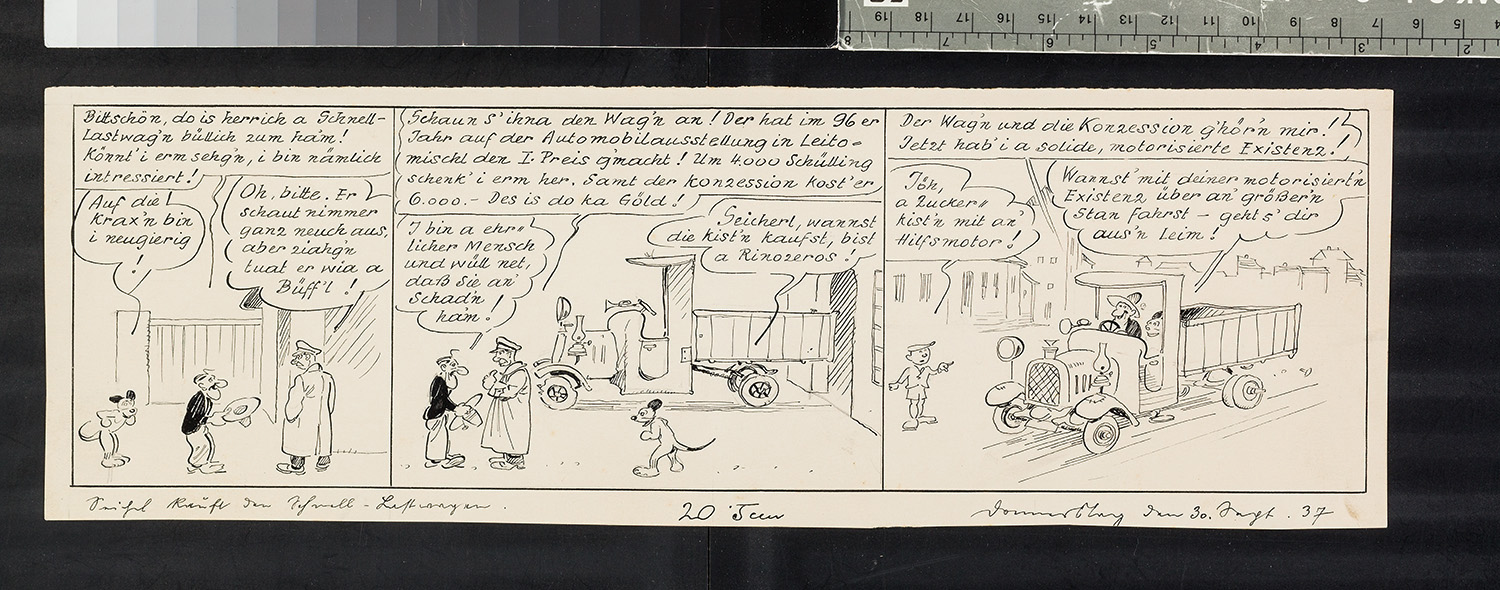 Bittschön, do is herrich a Schnell-
Lastwag'n büllich zum ha'm!
Könnt' i erm sehg'n, i bin nämlich
intressiert!
Auf die
Krax'n bin
i neugierig
!
Oh, bitte. Er
schaut nimmer
ganz neuch aus,
aber ziahg'n
tuat er wia a
Büff'l!
Schaun s' ihna den Wag'n an! Der hat im 96 er
Jahr auf der Automobilausstellung in Leito=
mischl den I. Preis gmacht! Um 4.000 Schülling
schenk' i erm her. Samt der Konzession kost' er
6.000.- Des is do ka Göld!
I bin a ehr=
licher Mensch
und wüll net,
daß Sie an'
Schad'n
ha'm!
Seicherl, wannst
die Kist'n kaufst, bist
a Rinozeros!
Der Wag'n und die Konzession g'hör'n mir!
Jetzt hab' i a solide, motorisierte Existenz!
Jöh,
a Zucker=
kist'n mit an'
Hilfsmotor!
Wannst' mit deiner motorisiert'n
Existenz über an' größer'n
Stan fahrst - geht s' dir
aus'n Leim!
Seichel kauft den Schnell-Lastwagen.
20 cm
Donnerstag den 30. Sept. 37
8 19 18 17 16 15 14 13 12 11 10 9 8 7 6 5 4
8 7 6 5 4 3 2